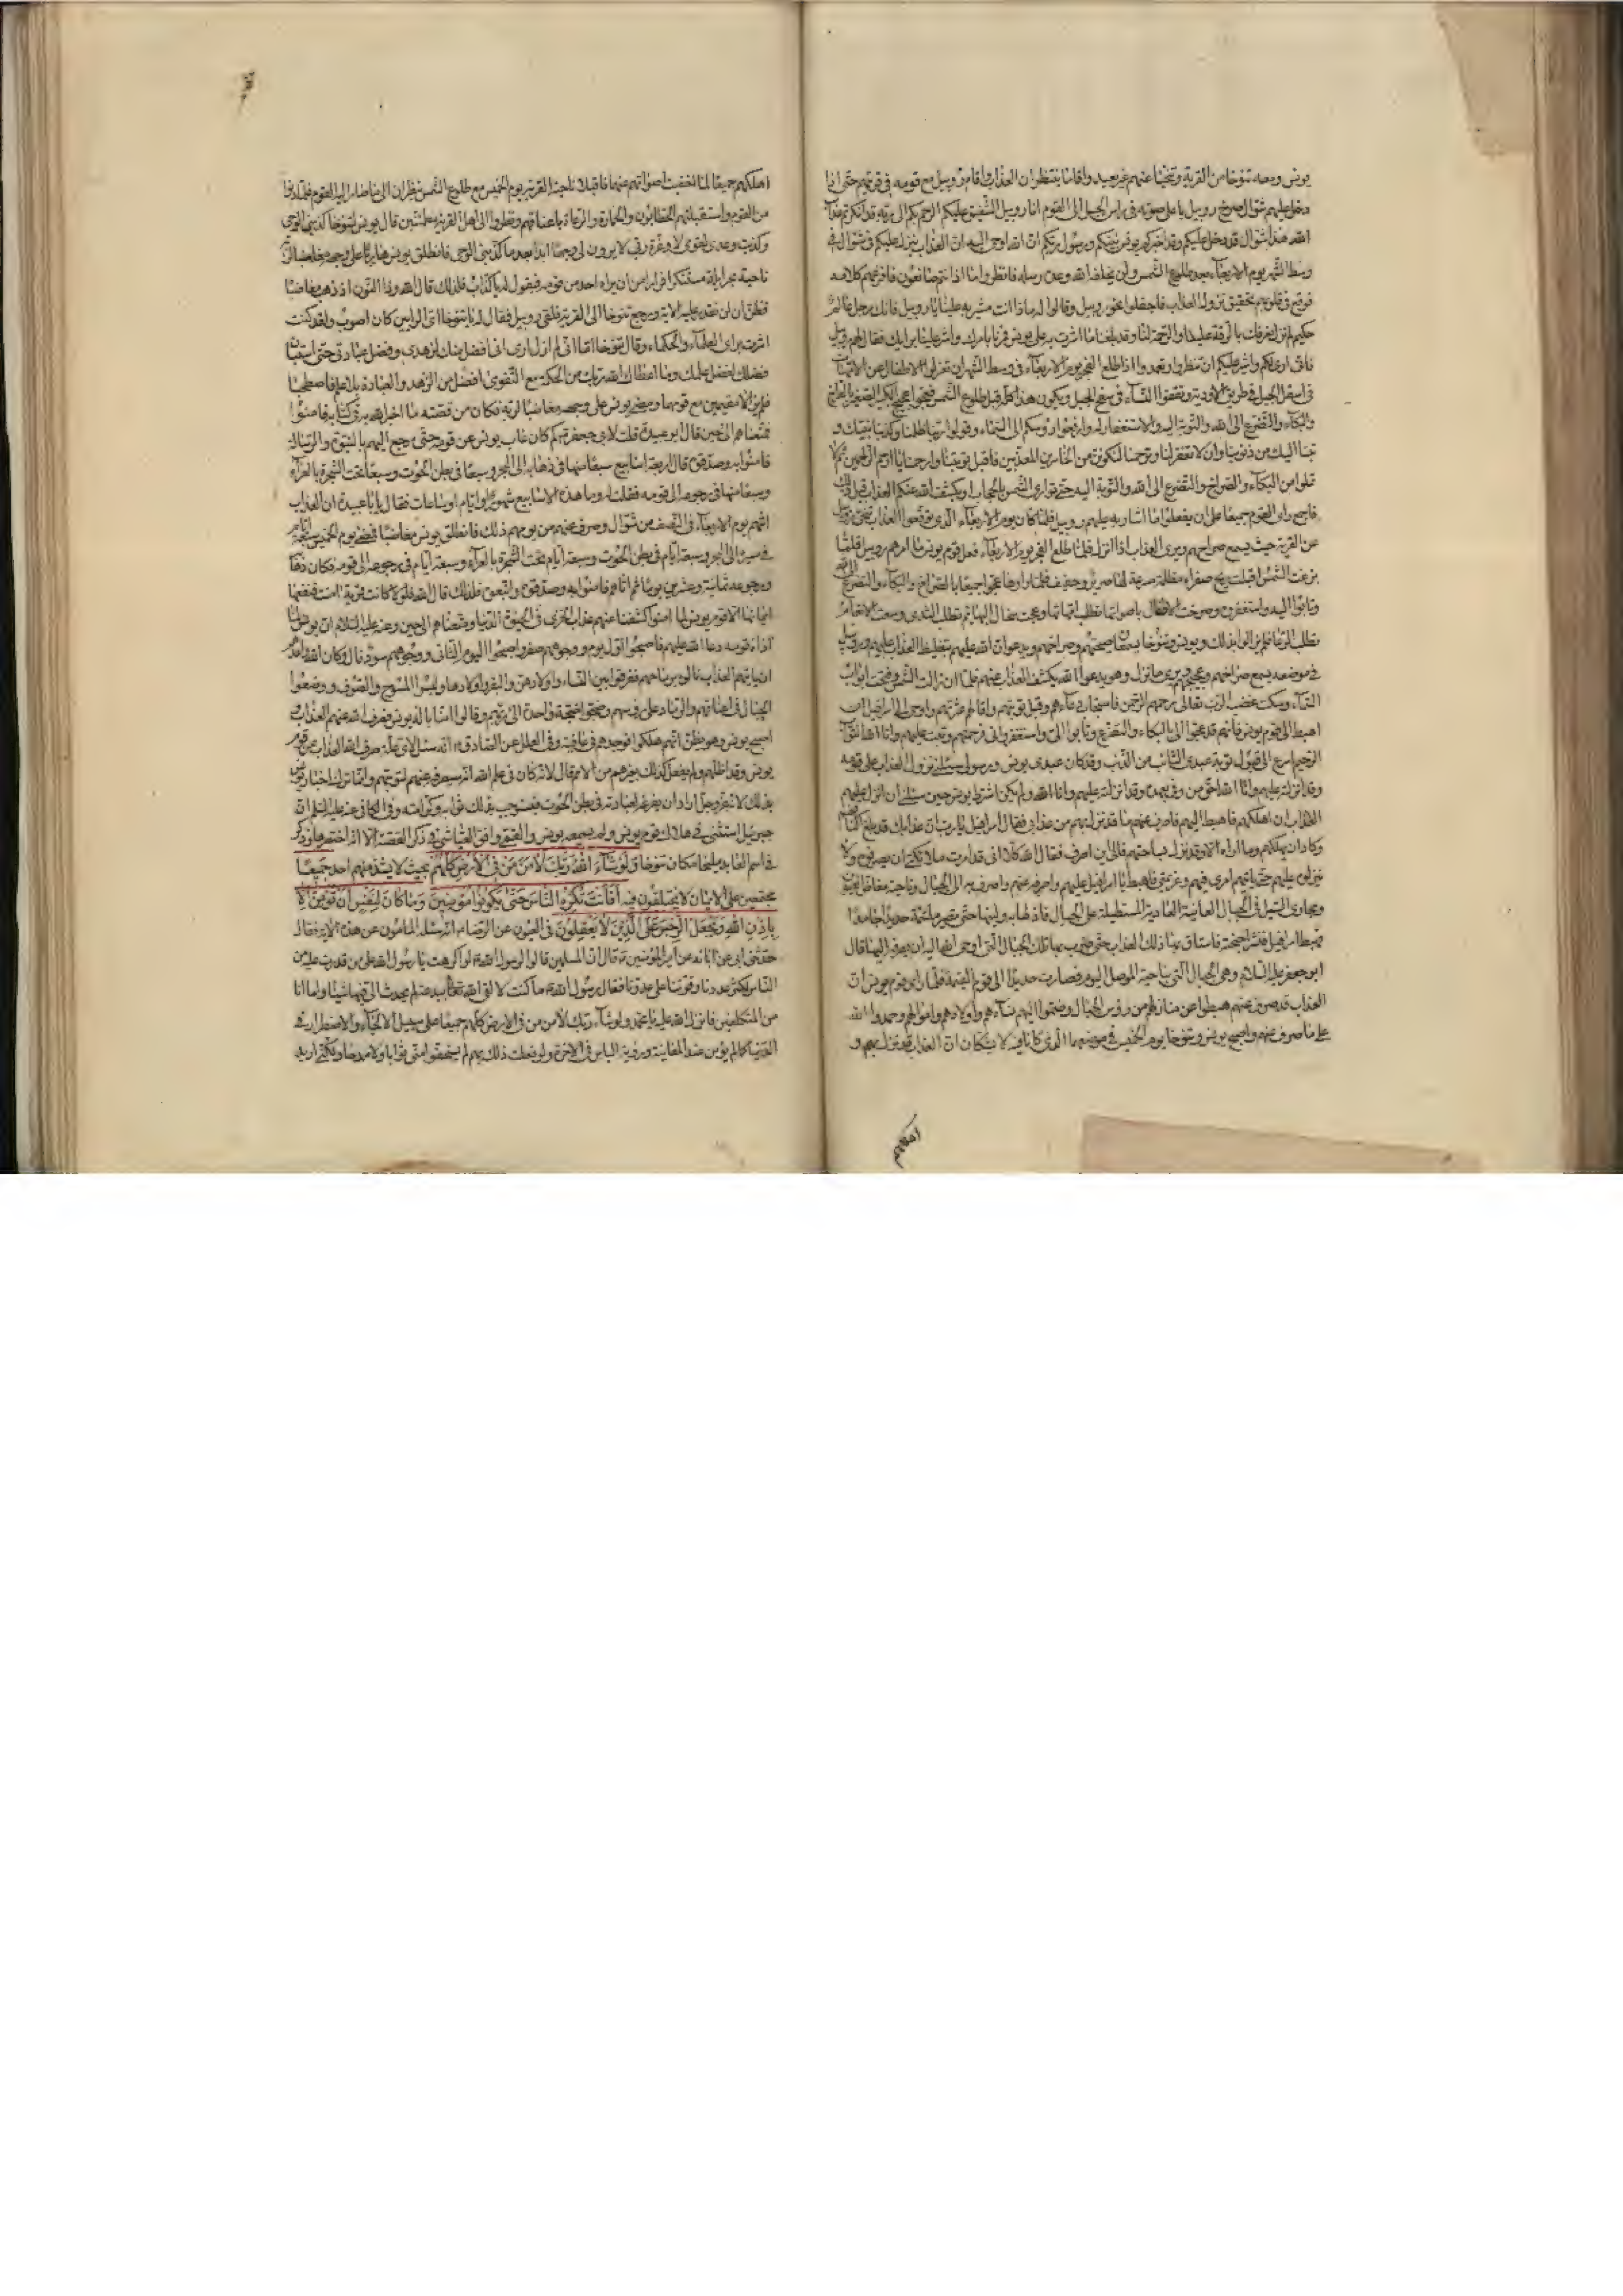 يونس ومعه تنوخا من القرية وتنحيا عنهم غير بعيد واقاما ينتظران العذاب واقام روبيل مع قومه في قريتهم حتى اذا
دخل عليهم شوال صرخ روبيل باعلى صوته في راس الجبل الى القوم انا روبيل الشفيق عليكم الرحيم بكم الى ربه قد انكرتم عذاب
الله هذا شوال قد دخل عليكم وقد اخبركم يونس نبيكم ورسول ربكم ان الله اوحى اليه ان العذاب ينزل عليكم في شوال في
وسط الشهر يوم الاربعاء بعد طلوع الشمس ولن يخلف الله وعده رسله فانظروا ماذا انتم صانعون فافزعهم كلامه
فوقع في قلوبهم تحقيق نزول العذاب فاجفلوا نحو روبيل وقالوا له ماذا انت مشير به علينا يا روبيل فانك رجل عالم
حكيم لم نزل نعرفك بالرقة علينا والرحمة لنا وقد بلغنا ما اشرت به على يونس فمرنا بامرك واشر علينا برايك فقال لهم روبيل
فاني ارى لكم واشير عليكم ان تنظروا وتعمدوا اذا طلع الفجر يوم الاربعاء في وسط الشهر ان تعزلوا الاطفال عن الامهات
في اسفل الجبل في طريق الاودية وتقفوا النساء في سفح الجبل ويكون هذا كله قبل طلوع الشمس فعجوا عجيج الكبير منكم والصغير بالصراخ
والبكاء والتضرع الى الله والتوبة اليه والاستغفار له وارفعوا رؤسكم الى السماء وقولوا ربنا ظلمنا وكذبنا نبيك و
تبنا اليك من ذنوبنا وان لا تغفر لنا وترحمنا لنكونن من الخاسرين المعذبين فاقبل توبتنا وارحمنا يا ارحم الراحمين ثم لا
تملوا من البكاء والصراخ والتضرع الى الله والتوبة اليه حتى توارى الشمس بالحجاب او يكشف الله عنكم العذاب قبل ذلك
فاجمع راى القوم جميعا على ان يفعلوا ما اشار به عليهم روبيل فلما كان يوم الاربعاء الذي توقعوا العذاب تنحى روبيل
عن القرية حيث يسمع صراخهم ويرى العذاب اذا نزل فلما طلع الفجر يوم الاربعاء فعل قوم يونس ما امرهم روبيل فلما
بزغت الشمس اقبلت ريح صفراء مظلمة مسرعة لها صرير وحفيف فلما راوها عجوا جميعا بالصراخ والبكاء والتضرع الى الله
وتابوا اليه واستغفروه وصرخت الاطفال باصواتها تطلب امهاتها وعجت سخال البهائم تطلب الثدى وسعت الانعام
تطلب الرعا فلم يزالوا بذلك ويونس وتنوخا يسمعان صيحتهم وصراخهم ويدعوان الله عليهم بتغليظ العذاب عليهم وروبيل
في موضعه يسمع صراخهم وعجيجهم ويرى ما نزل وهو يدعو الله بكشف العذاب عنهم فلما ان زالت الشمس وفتحت ابواب
السماء وسكن غضب الرب تعالى رحمهم الرحمن فاستجاب دعاءهم وقبل توبتهم واقالهم عثرتهم واوحى الى اسرافيل ان
اهبط الى قوم يونس فانهم قد عجوا الى بالبكاء والتضرع وتابوا الى واستغفروني فرحمتهم وتبت عليهم وانا الله التواب
الرحيم اسرع الى قبول توبة عبدي التائب من الذنب وقد كان عبدي يونس ورسولي سئلني نزول العذاب على قومه
وقد انزلته عليهم وانا الله احق من وفى بعهده وقد انزلته عليهم وانا الله ولم يكن اشترط يونس حين سئلني ان انزل عليهم
العذاب ان اهلكهم فاهبط اليهم فاصرف عنهم ما قد نزل بهم من عذابي فقال اسرافيل يا رب ان عذابك قد بلغ اكتافهم
وكاد ان يهلكهم وما اراه الا وقد نزل بساحتهم فالى اين اصرفه فقال الله كلا اني قد امرت ملائكتي ان يصرفوه ولا
ينزلوه عليهم حتى ياتيهم امري فيهم وعزيمتي فاهبط يا اسرافيل عليهم واصرفه عنهم واصرف به الى الجبال وناحية مفاض العيون
ومجارى السيل في الجبال العاتية العادية المستطيلة على الجبال فاذلها به ولينها حتى تصير ملتئمة حديدا جامدا
فهبط اسرافيل فنشر اجنحته فاستاق بها ذلك العذاب حتى ضرب بها تلك الجبال التي اوحى الله اليه ان يصرفه اليها قال
ابو جعفر عليه السلام وهي الجبال التي بناحية الموصل اليوم فصارت حديدا الى يوم القيمة فلما راى قوم يونس ان
العذاب قد صرف عنهم هبطوا عن منازلهم من رؤس الجبال وضموا اليهم نساءهم واولادهم واموالهم وحمدوا الله
على ما صرف عنهم واصبح يونس وتنوخا يوم الخميس في موضعهما الذي كانا فيه لا يشكان ان العذاب قد نزل بهم و
اهلكهم
اهلكهم جميعا لما خفيت اصواتهم عنهما فاقبلا ناحية القرية يوم الخميس مع طلوع الشمس ينظران الى ما صار اليه القوم فلما دنوا
من القوم واستقبلتهم الحطابون والحمارة والرعاة باعناقهم ونظروا الى اهل القرية مطمئنين قال يونس لتنوخا كذبني الوحي
وكذبت وعدي لقومي لا وعزة ربي لا يرون لي وجها ابدا بعد ما كذبني الوحي فانطلق يونس هاربا على وجهه مغاضبا لربه
ناحية بحر ايلة مستنكرا فرارا من ان يراه احد من قومه فيقول له يا كذاب فلذلك قال الله وذا النون اذ ذهب مغاضبا
فظن ان لن نقدر عليه الاية ورجع تنوخا الى القرية فلقى روبيل فقال له يا تنوخا اي الرايين كان اصوب ولقد كنت
اشرت براي العلماء والحكماء وقال تنوخا اما اني لم ازل ارى اني افضل منك لزهدي وفضل عبادتي حتى استبان
فضلك لفضل علمك وما اعطاك الله ربك من الحكمة مع التقوى افضل من الزهد والعبادة بلا علم فاصطحبا
فلم يزالا مقيمين مع قومهما ومضى يونس على وجهه مغاضبا لربه فكان من قصته ما اخبر الله به في كتابه فامنوا
فمتعناهم الى حين قال ابو عبيدة قلت لابي جعفر كم كان غاب يونس عن قومه حتى رجع اليهم بالنبوة والرسالة
فامنوا به وصدقوه قال اربعة اسابيع سبعا منها في ذهابه الى البحر وسبعا في بطن الحوت وسبعا تحت الشجرة بالعراء
وسبعا منها في رجوعه الى قومه فقلت له وما هذه الاسابيع شهور او ايام او ساعات فقال يا ابا عبيدة ان العذاب
اتيهم يوم الاربعاء في النصف من شوال وصرف عنهم من يومهم ذلك فانطلق يونس مغاضبا فمضى يوم الخميس سبعة ايام
في مسيره الى البحر وسبعة ايام في بطن الحوت وسبعة ايام تحت الشجرة بالعراء وسبعة ايام في رجوعه الى قومه فكان ذهابه
ورجوعه ثمانية وعشرين يوما ثم اتاهم فامنوا به وصدقوه واتبعوه فلذلك قال الله فلولا كانت قرية امنت فنفعها
ايمانها الا قوم يونس لما امنوا كشفنا عنهم عذاب الخزى في الحيوة الدنيا ومتعناهم الى حين وعنه عليه السلام ان يونس لما
اذاه قومه دعا الله عليهم فاصبحوا اول يوم ووجوههم صفر واصبحوا اليوم الثاني ووجوههم سود قال وكان الله واعدهم
ان ياتيهم العذاب نالوه برماحهم ففرقوا بين النساء واولادهن والبقر واولادها ولبسوا المسوح والصوف ووضعوا
الحبال في اعناقهم والرماد على رؤسهم وضجوا ضجة واحدة الى ربهم وقالوا امنا باله يونس فصرف الله عنهم العذاب و
اصبح يونس وهو يظن انهم هلكوا فوجدهم في عافية وفي العلل عن الصادق انه سئل لاي علة صرف الله العذاب عن قوم
يونس وقد اظلهم ولم يفعل كذلك بغيرهم من الامم قال لانه كان في علم الله انه سيصرفه عنهم لتوبتهم وانما ترك اخبار يونس
بذلك لانه عز وجل اراد ان يفرغه لعبادته في بطن الحوت فيستوجب بذلك ثوابه وكرامته وفي الكافي عنه عليه السلام ان
جبرئيل استثنى في هلاك قوم يونس ولم يسمعه يونس والقمي وافق العياشي في ذكر القصة الا انه اختصرها وذكر
في اسم العابد مليخا مكان تنوخا ولو شاء ربك لامن من في الارض كلهم بحيث لا يشذ منهم احد جميعا
مجتمعين على الايمان لا يختلفون فيه افانت تكره الناس حتى يكونوا مؤمنين وما كان لنفس ان تؤمن الا
باذن الله ويجعل الرجس على الذين لا يعقلون في العيون عن الرضا انه سئله المامون عن هذه الاية فقال
حدثني ابي عن ابائه عن امير المؤمنين قال ان المسلمين قالوا لرسول الله لو اكرهت يا رسول الله من قدرت عليه من
الناس لكثر عددنا وقوينا على عدونا فقال رسول الله ما كنت لالقى الله تعالى ببدعة لم يحدث الى فيها شيئا وما انا
من المتكلفين فانزل الله عليه يا محمد ولو شاء ربك لامن من في الارض كلهم جميعا على سبيل الالجاء والاضطرار في
الدنيا كما لم يؤمن عند المعاينة ورؤية الباس في الاخرة ولو فعلت ذلك بهم لم يستحقوا مني ثوابا ولا مدحا ولكني اريد